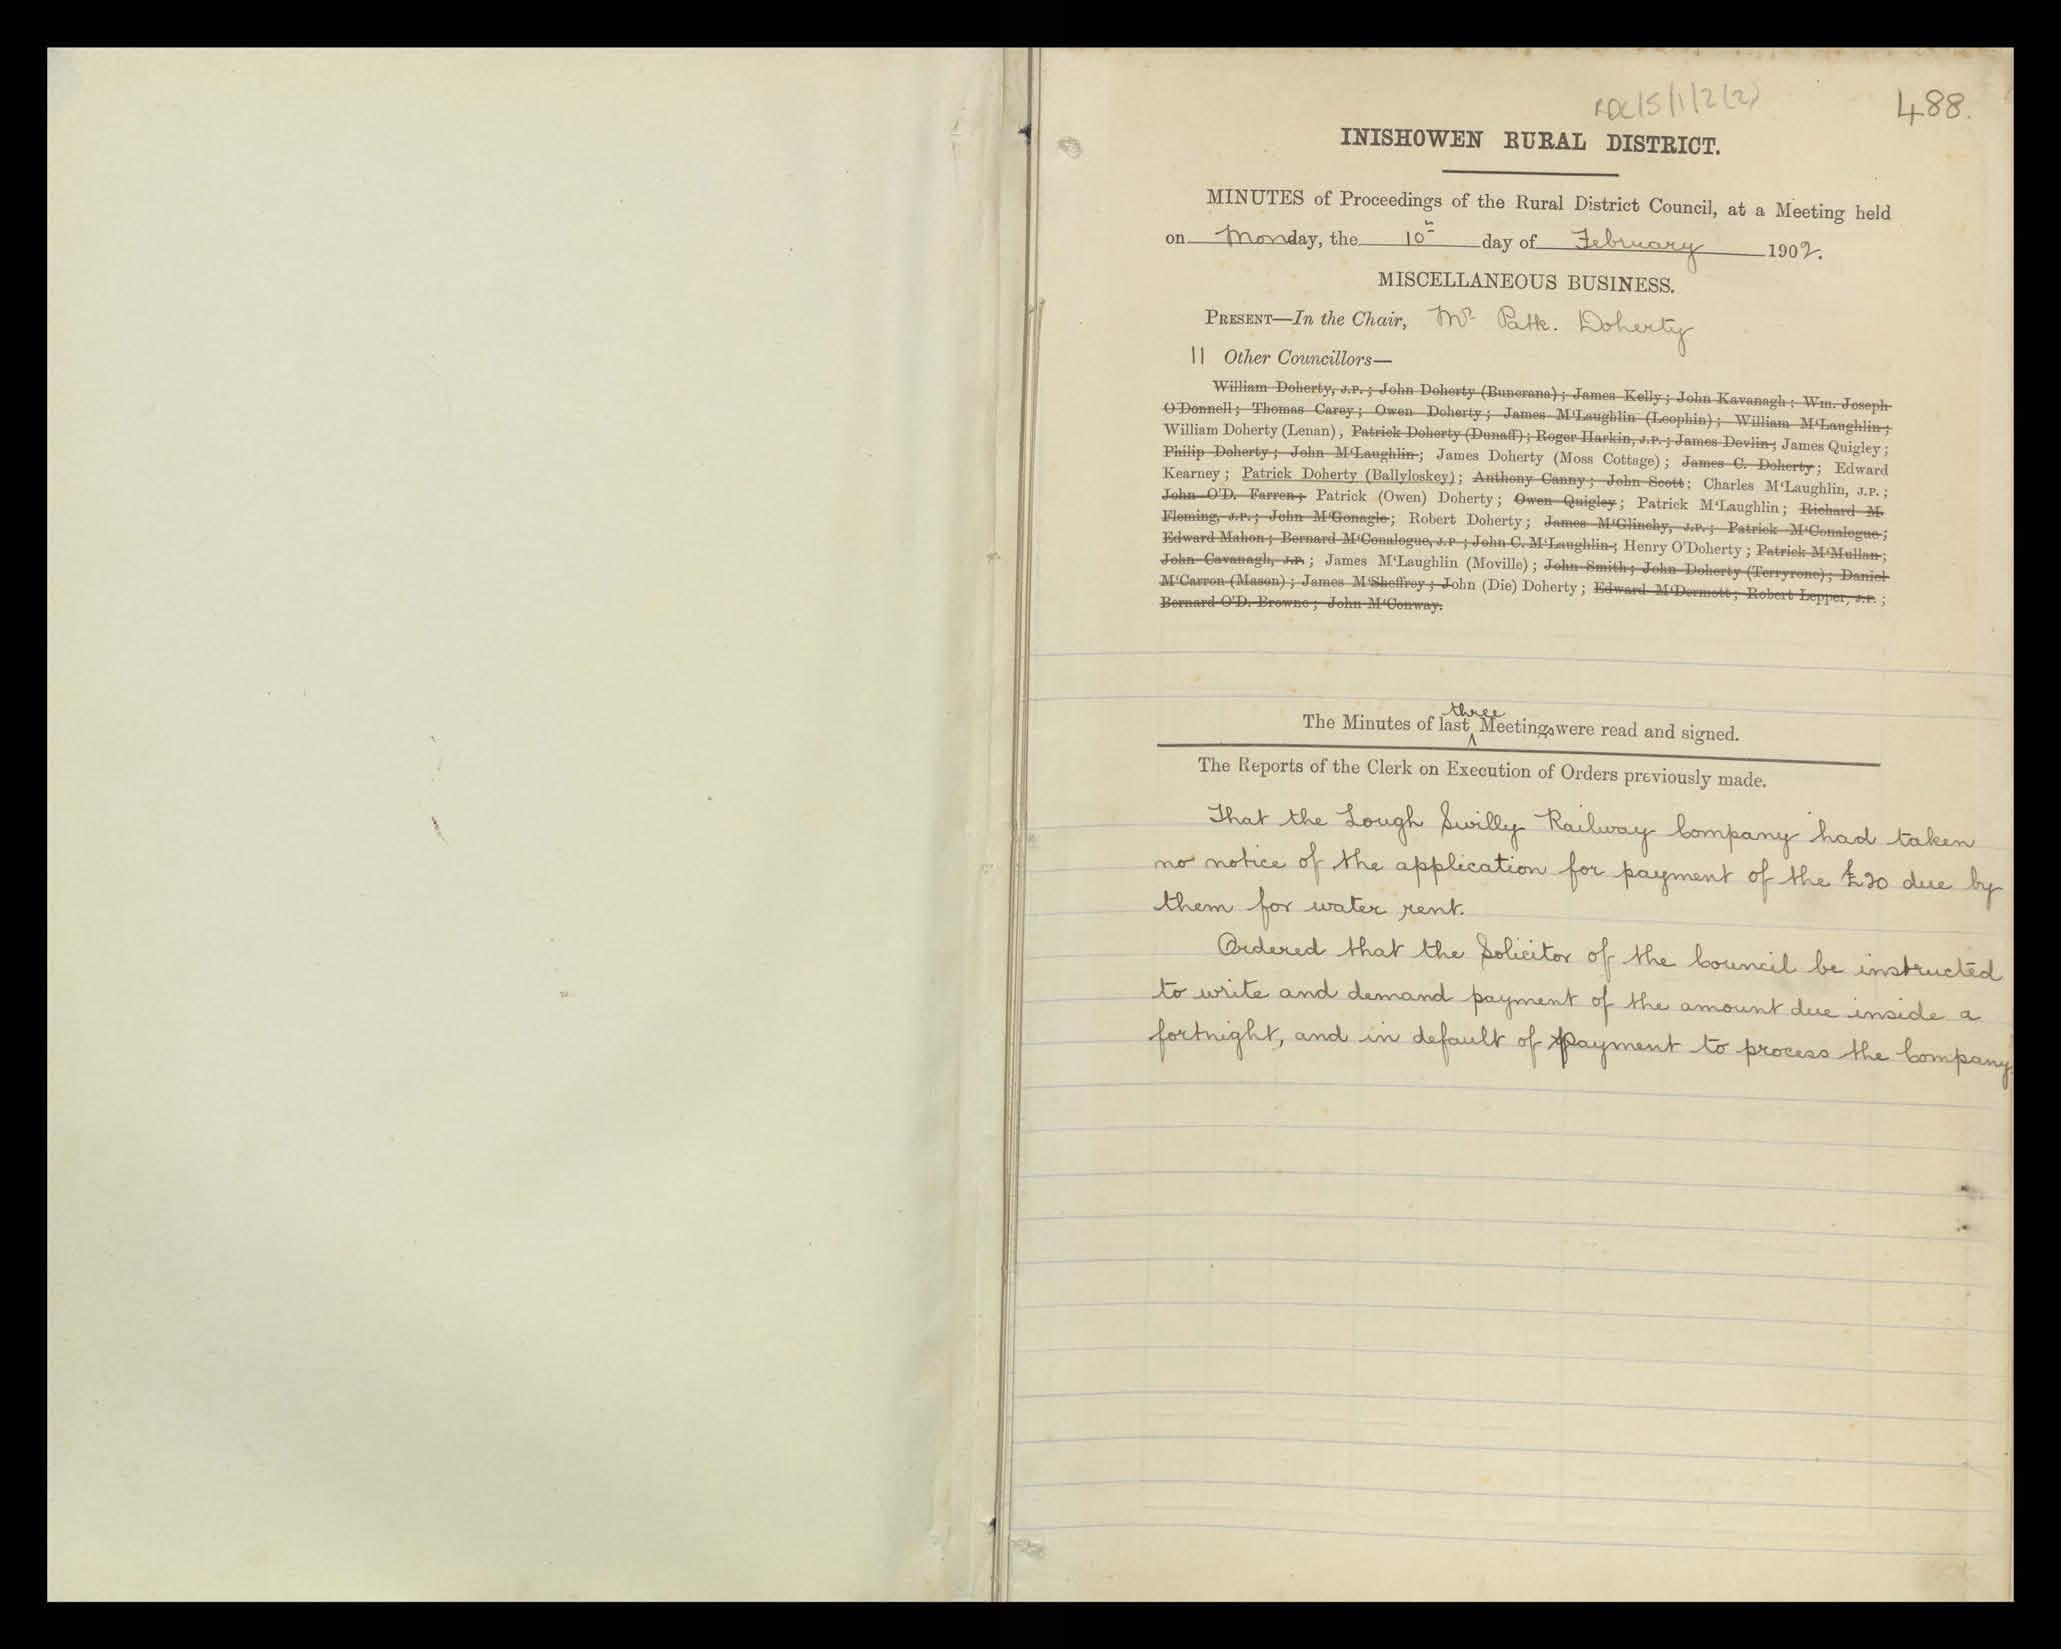 RDC/5/1/2(2)
488.
INISHOWEN RURAL DISTRICT.
MINUTES of Proceedings of the Rural District Council, at a Meeting held
on Monday, the 10th day of February 1902.
MISCELLANEOUS BUSINESS.
PRESENT—In the Chair, Mr Patk. Doherty
11 Other Councillors—
William Doherty, J.P.; John Doherty (Buncrana); James Kelly; John Kavanagh; Wm. Joseph
O'Donnell; Thomas Carey; Owen Doherty; James M'Laughlin (Leophin); William M'Laughlin;
William Doherty (Lenan), Patrick Doherty (Dunaff); Roger Harkin, J.P.; James Devlin; James Quigley;
Philip Doherty; John M'Laughlin; James Doherty (Moss Cottage); James C. Doherty; Edward
Kearney; Patrick Doherty (Ballyloskey); Anthony Canny; John Scott; Charles M'Laughlin, J.P.;
John O'D. Farren; Patrick (Owen) Doherty; Owen Quigley; Patrick M'Laughlin; Richard M.
Fleming, J.P.; John M'Gonagle; Robert Doherty; James M'Glinchy, J.P.; Patrick M'Conalogue;
Edward Mahon; Bernard M'Conalogue, J.P.; John C. M'Laughlin; Henry O'Doherty; Patrick M'Mullan;
John Cavanagh, J.P.; James M'Laughlin (Moville); John Smith; John Doherty (Terryrone); Daniel
M'Carron (Mason); James M'Sheffrey; John (Die) Doherty; Edward M'Dermott; Robert Lepper, J.P.;
Bernard O'D. Browne; John M'Conway.
The Minutes of last three Meetings were read and signed.
The Reports of the Clerk on Execution of Orders previously made.
That the Lough Swilly Railway Company had taken
no notice of the application for payment of the £20 due by
them for water rent.
Ordered that the Solicitor of the Council be instructed
to write and demand payment of the amount due inside a
fortnight, and in default of payment to process the Company.